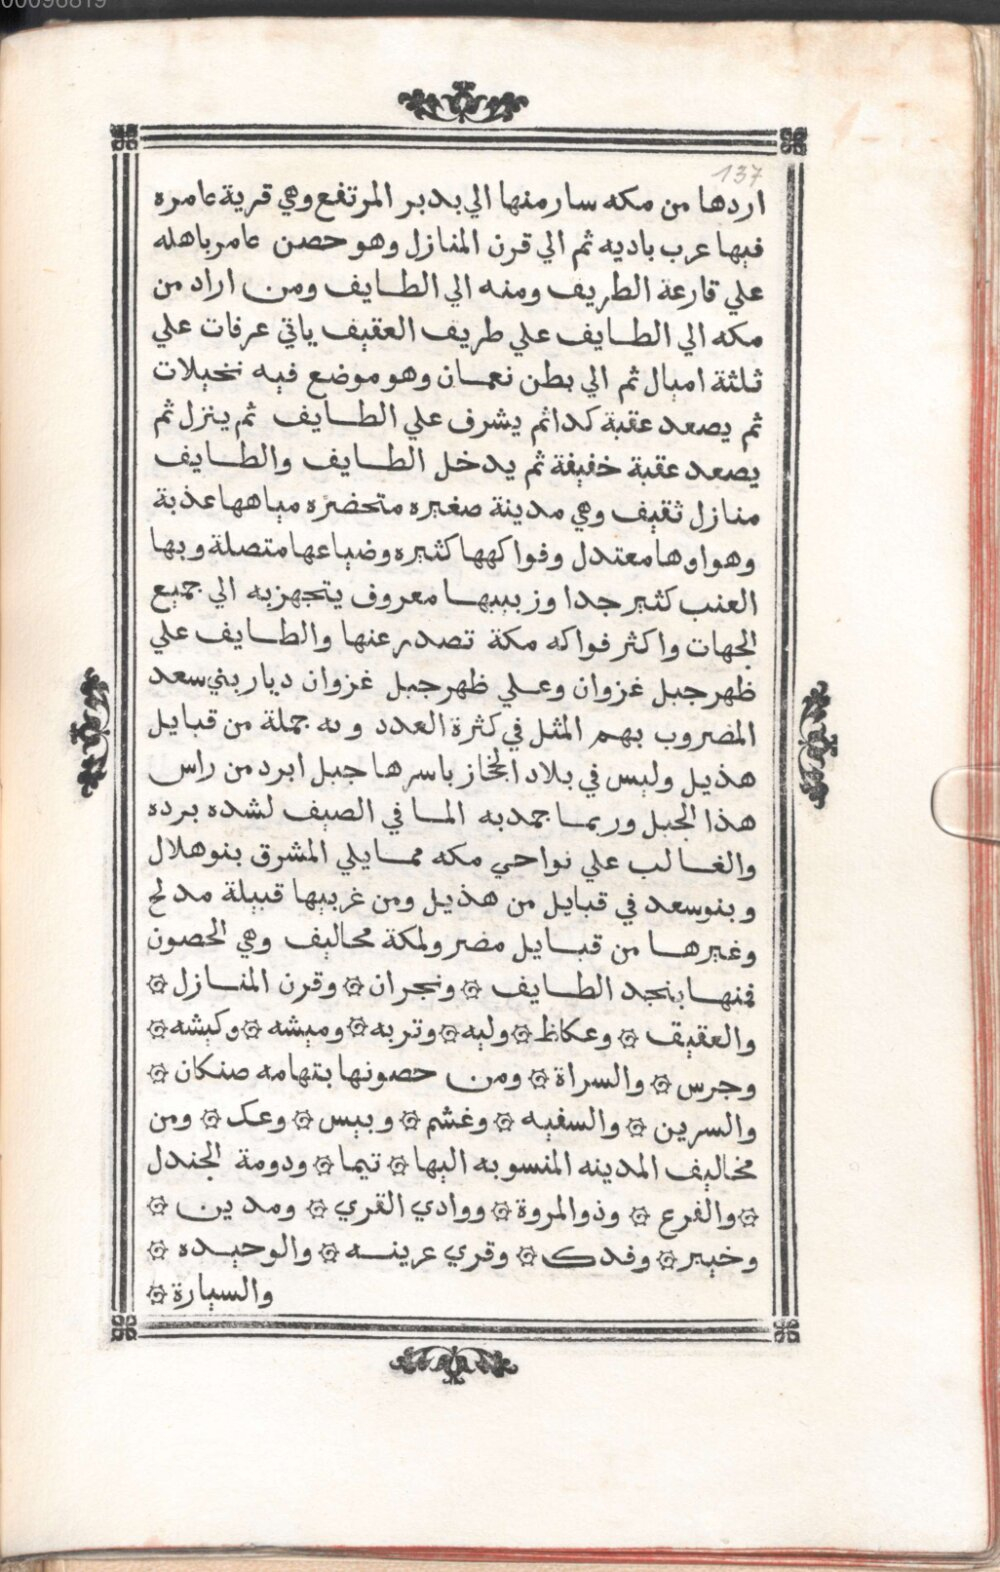 00096819
137
اردها من مكه سار منها الي بدبر المرتفع وهي قرية عامره
فيها عرب باديه ثم الي قرن المنازل وهو حصن عامر باهله
علي قارعة الطريف ومنه الي الطايف ومن اراد من
مكه الي الطايف علي طريف العقيف ياتي عرفات علي
ثلثة اميال ثم الي بطن نعمان وهو موضع فيه نخيلات
ثم يصعد عقبة كدا ثم يشرف علي الطايف ثم ينزل ثم
يصعد عقبة خفيفة ثم يدخل الطايف والطايف
منازل ثقيف وهي مدينة صغيره متحضره مياهها عذبة
وهواوها معتدل وفواكهها كثيره وضياعها متصلة وبها
العنب كثير جدا وزبيبها معروف يتجهز به الي جميع
الجهات واكثر فواكه مكة تصدر عنها والطايف علي
ظهر جبل غزوان وعلي ظهر جبل غزوان ديار بني سعد
المضروب بهم المثل في كثرة العدد وبه جملة من قبايل
هذيل وليس في بلاد الحجاز باسرها جبل ابرد من راس
هذا الجبل وربما جمد به الما في الصيف لشده برده
والغالب علي نواحي مكه مما يلي المشرق بنو هلال
وبنو سعد في قبايل من هذيل ومن غربيها قبيلة مدلج
وغيرها من قبايل مضر ولمكة مخاليف وهي الحصون
فمنها بنجد الطايف ۞ ونجران ۞ وقرن المنازل ۞
والعقيق ۞ وعكاظ ۞ وليه ۞ وتربه ۞ وميشه ۞ وكيشه ۞
وجرس ۞ والسراة ۞ ومن حصونها بتهامه صنكان ۞
والسرين ۞ والسفيه ۞ وغشم ۞ وبيس ۞ وعك ۞ ومن
مخاليف المدينه المنسوبه اليها ۞ تيما ۞ ودومة الجندل
۞ والفرع ۞ وذو المروة ۞ ووادي القري ۞ ومدين ۞
وخيبر ۞ وفدك ۞ وقري عرينه ۞ والوحيده ۞
والسيارة ۞